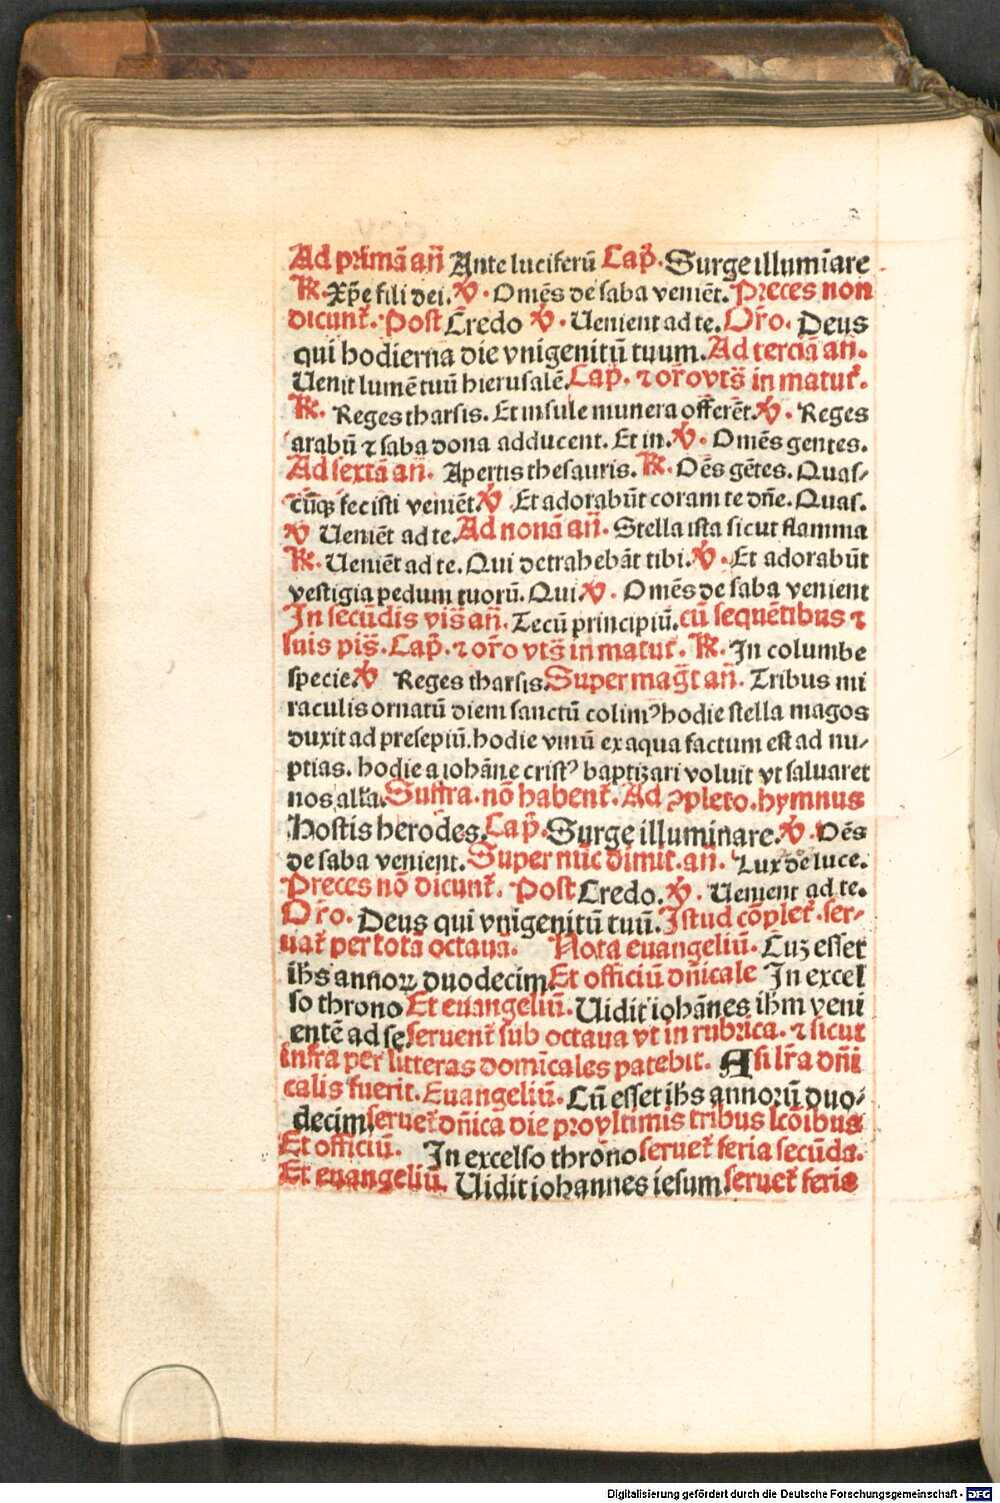 Ad primā añ Ante luciferū Cap̃. Surge illumīare
℟. Xp̄e fili dei. ℣. Omēs de saba veniēt. Preces non
dicunt̃. Post Credo ℣. Uenient ad te. Or̃o. Deus
qui hodierna die vnigenitū tuum. Ad terciā añ.
Uenit lumē tuū hierusalē. Cap̃. ⁊ or̃o vts̃ in matut̃.
℟. Reges tharsis. Et insule munera offerēt. ℣. Reges
arabū ⁊ saba dona adducent. Et in. ℣. Omēs gentes.
Ad sextā añ. Apertis thesauris. ℟. Oēs gētes. Quas-
cūqꝫ fecisti veniēt ℣ Et adorabūt coram te dñe. Quas.
℣ Ueniēt ad te. Ad nonā añ. Stella ista sicut flamma
℟. Ueniēt ad te. Qui detrahebāt tibi. ℣. Et adorabūt
vestigia pedum tuorū. Qui ℣. Omēs de saba venient
In secūdis vis̃ añ. Tecū principiū. cū sequētibus ⁊
suis pis̃. Cap̃. ⁊ or̃o vts̃ in matut̃. ℟. In columbe
specie. ℣ Reges tharsis. Super mag̃t añ. Tribus mi
raculis ornatū diem sanctū colimꝰ hodie stella magos
duxit ad presepiū. hodie vinū ex aqua factum est ad nu-
ptias. hodie a iohāne cristꝰ baptizari voluit vt saluaret
nos alľa. Suffra. nō habent̃. Ad ꝯpleto. hymnus
Hostis herodes. Cap̃. Surge illuminare. ℣. Oēs
de saba venient. Super nūc dimit. añ. Lux de luce.
Preces nō dicunt̃. Post Credo. ℣. Uenient ad te.
Or̃o. Deus qui vnigenitū tuū. Istud cōplet̃. ser-
uat̃ per totā octauā. Nota euangeliū. Cuꝫ esset
ih̄s annoꝝ duodecim. Et officiū dn̄icale In excel
so throno Et euangeliū. Uidit iohānes ih̄m veni
entē ad se seruent̃ sub octaua vt in rubrica. ⁊ sicut
infra per litteras domīcales patebit. A si lr̃a dn̄i
calis fuerit. Euangeliū. Cū esset ih̄s annorū duo-
decim seruet̃ dn̄ica die pro vltimis tribus lcōibus
Et officiū. In excelso throno seruet̃ feria secūda.
Et euangeliū. Uidit iohannes iesum seruet̃ feria
Digitalisierung gefördert durch die Deutsche Forschungsgemeinschaft - DFG